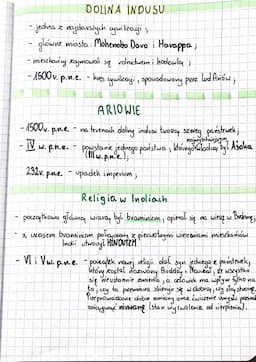 DOLINA INDUSU
- jedna z najstarszych cywilizacji ;
- główne miasta: Mohendżo Daro i Harappa ;
- mieszkańcy zajmowali się rolnictwem i hodowlą ;
- 1500 r. p.n.e. - kres cywilizacji, spowodowany przez lud Ariów ;
ARIOWIE
- 1500 r. p.n.e. - na terenach doliny indusu tworzą szereg państewek ;
- IV w. p.n.e. - powstanie jednego państwa, którego władcą był Aśoka
(III w. p.n.e.) ;
232 r. p.n.e. - upadek imperium ;
Religia w Indiach
- początkowo główną wiarą był braminizm, opierał się na wierze w Brahmę ;
- z czasem braminizm połączony z pierwotnymi wierzeniami mieszkańców
Indii utworzył HINDUIZM
- VI i V w. p.n.e. - początek nowej religii dał syn jednego z
który został nazwany Buddą. Nauczał, że wszystko
się nieustannie zmienia, a człowiek ma wpływ tylko na
to, czy ta przemiana zbliża się w dobrą, czy złą stronę.
dobre uczynki oraz ćwiczenie umysłu pozwala
osiągnąć nirwanę (stan wyzwolenia od cierpienia).